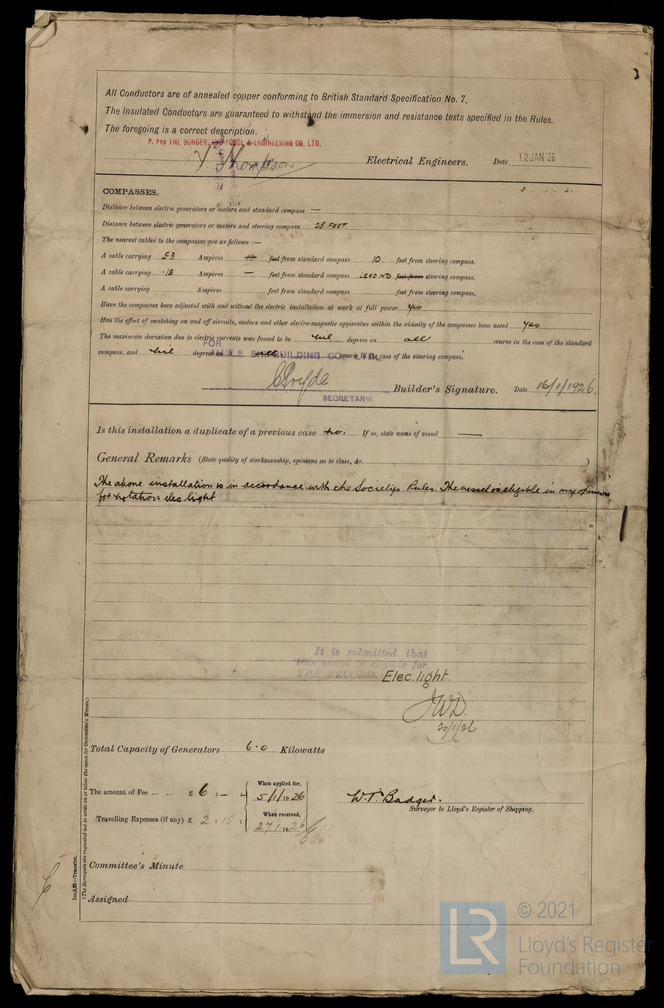 All Conductors are of annealed copper conforming to British Standard Specification No. 7.
The Insulated Conductors are guaranteed to withstand the immersion and resistance tests specified in the Rules.
The foregoing is a correct description.
THE SUNDERLAND FORGE & ENGINEERING CO. LTD.
V Thompson Electrical Engineers. Date 12 JAN '26
COMPASSES.
Distance between electric generators or motors and standard compass —
Distance between electric generators or motors and steering compass 25 FEET
The nearest cables to the compasses are as follows :—
A cable carrying Ampères feet from standard compass 10 feet from steering compass.
A cable carrying ·18 Ampères — feet from standard compass LEAD INTO feet from steering compass.
A cable carrying Ampères feet from standard compass feet from steering compass.
Have the compasses been adjusted with and without the electric installation at work at full power yes
Has the effect of switching on and off circuits, motors and other electro-magnetic apparatus within the vicinity of the compasses been noted yes
The maximum deviation due to electric currents was found to be nil degrees on all course in the case of the standard
compass, and nil degrees on all course in the case of the steering compass.
FOR
SHIPBUILDING CO.
Builder's Signature. Date 16/1/1926.
SECRETARY.
Is this installation a duplicate of a previous case no. If so, state name of vessel —
General Remarks (State quality of workmanship, opinions as to class, &c. )
The above installation is in accordance with the Societys Rules. The vessel is eligible in my opinion
for notation elec light
It is submitted that
this vessel is eligible for
THE RECORD. Elec. light
JWD.
20/1/26
Total Capacity of Generators 6·0 Kilowatts
The amount of Fee ... ... £ 6 : — : When applied for, 5/1/1926
Travelling Expenses (if any) £ 2 : 15 : When received, 27.1.1926
W.T. Badger.
Surveyor to Lloyd's Register of Shipping.
Committee's Minute
Assigned
(The Surveyors are requested not to write on or below the space for Committee's Minute.)
Transfer.
LR
© 2021
Lloyd's Register
Foundation